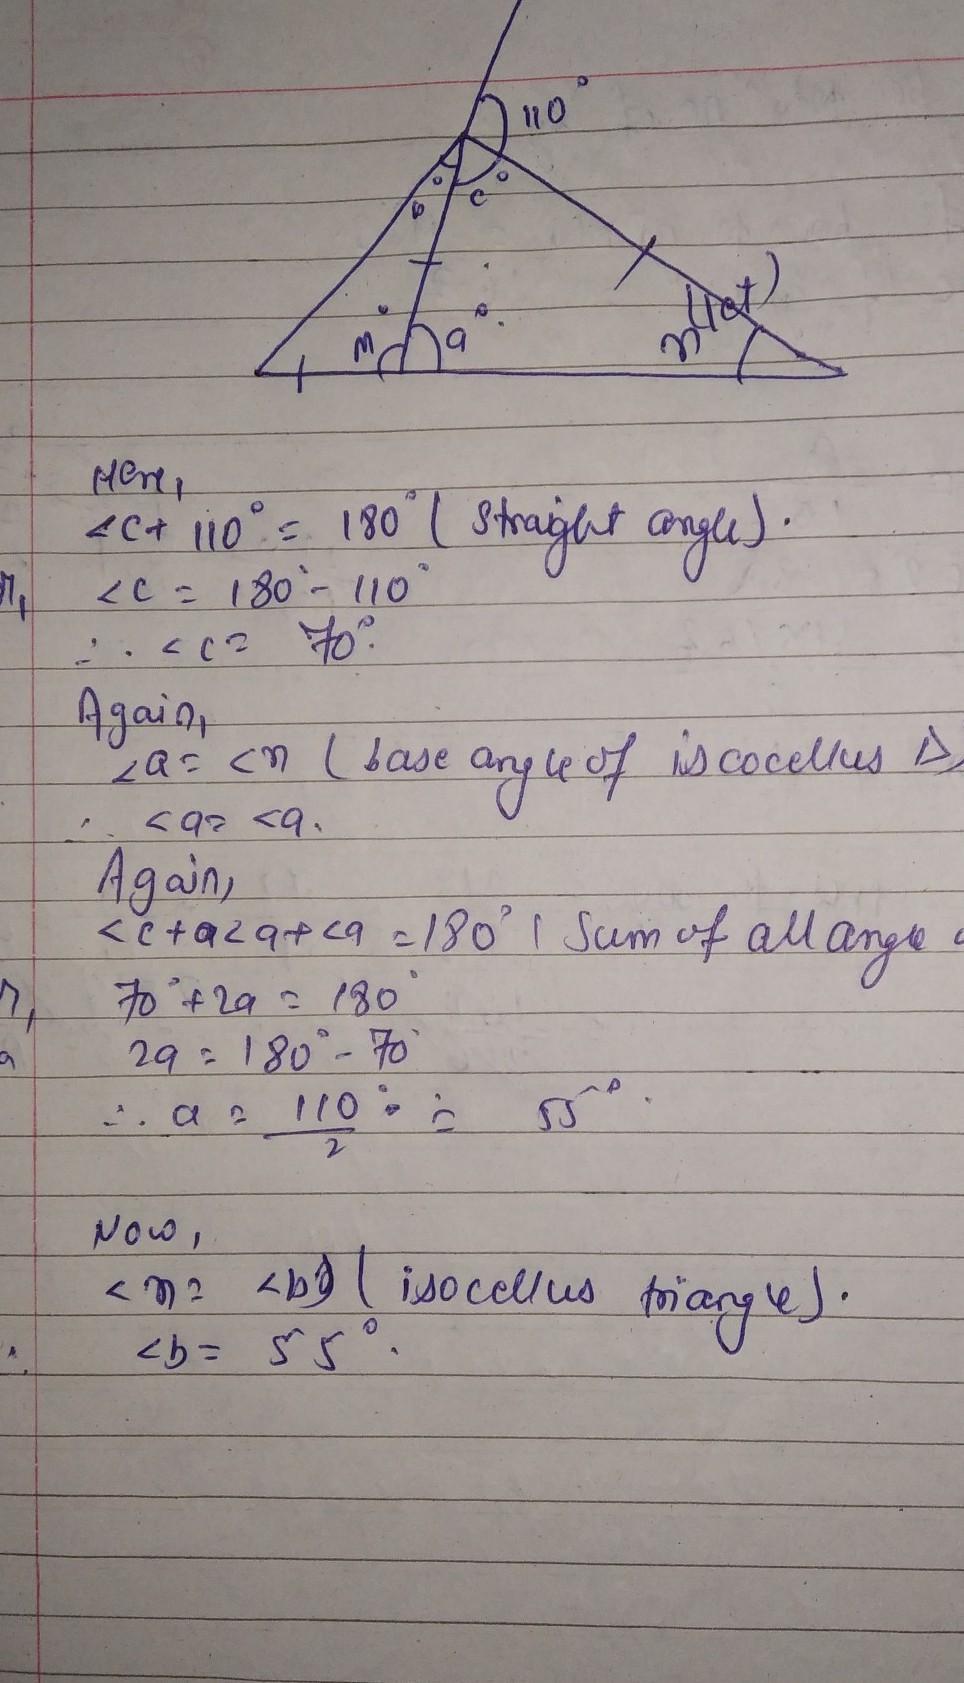 110°
b°
c°
m°
a°
n(let)
Here,
<c+ 110° = 180° ( Straight angle).
<c = 180° - 110°
∴ <c = 70°.
Again,
<a = <n ( base angle of iscocellus Δ
∴ <a = <a.
Again,
<c + <a + <a = 180° ( Sum of all angle
70° + 2a = 180°
2a = 180° - 70°
∴ a = 110°/2 = 55°.
Now,
<n = <b ( isocellus triangle).
<b = 55°.